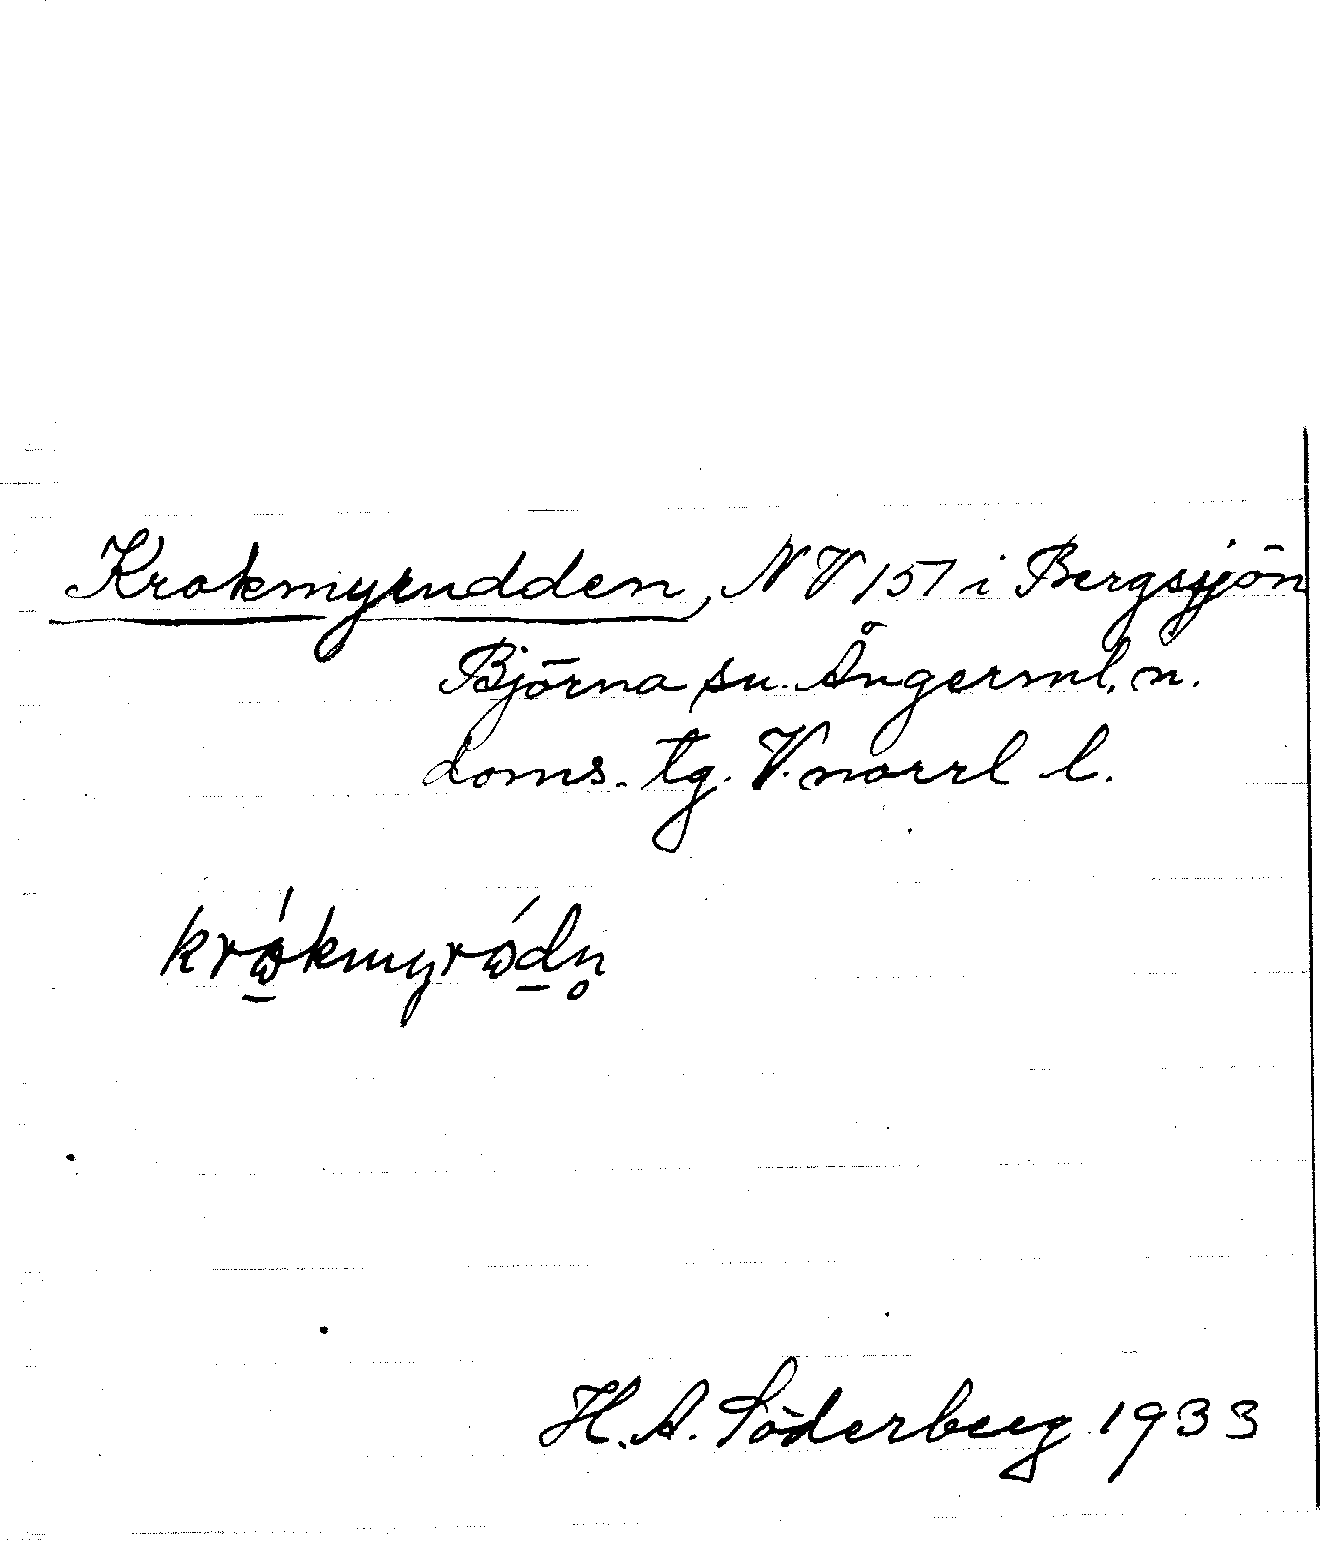 Krokmyrudden, NV 151 i Bergsjön
Björna sn. Ångerml. n.
doms. tg. V.norrl l.
krώ̱kmyrώḏn̥
H. A. Söderberg 1933